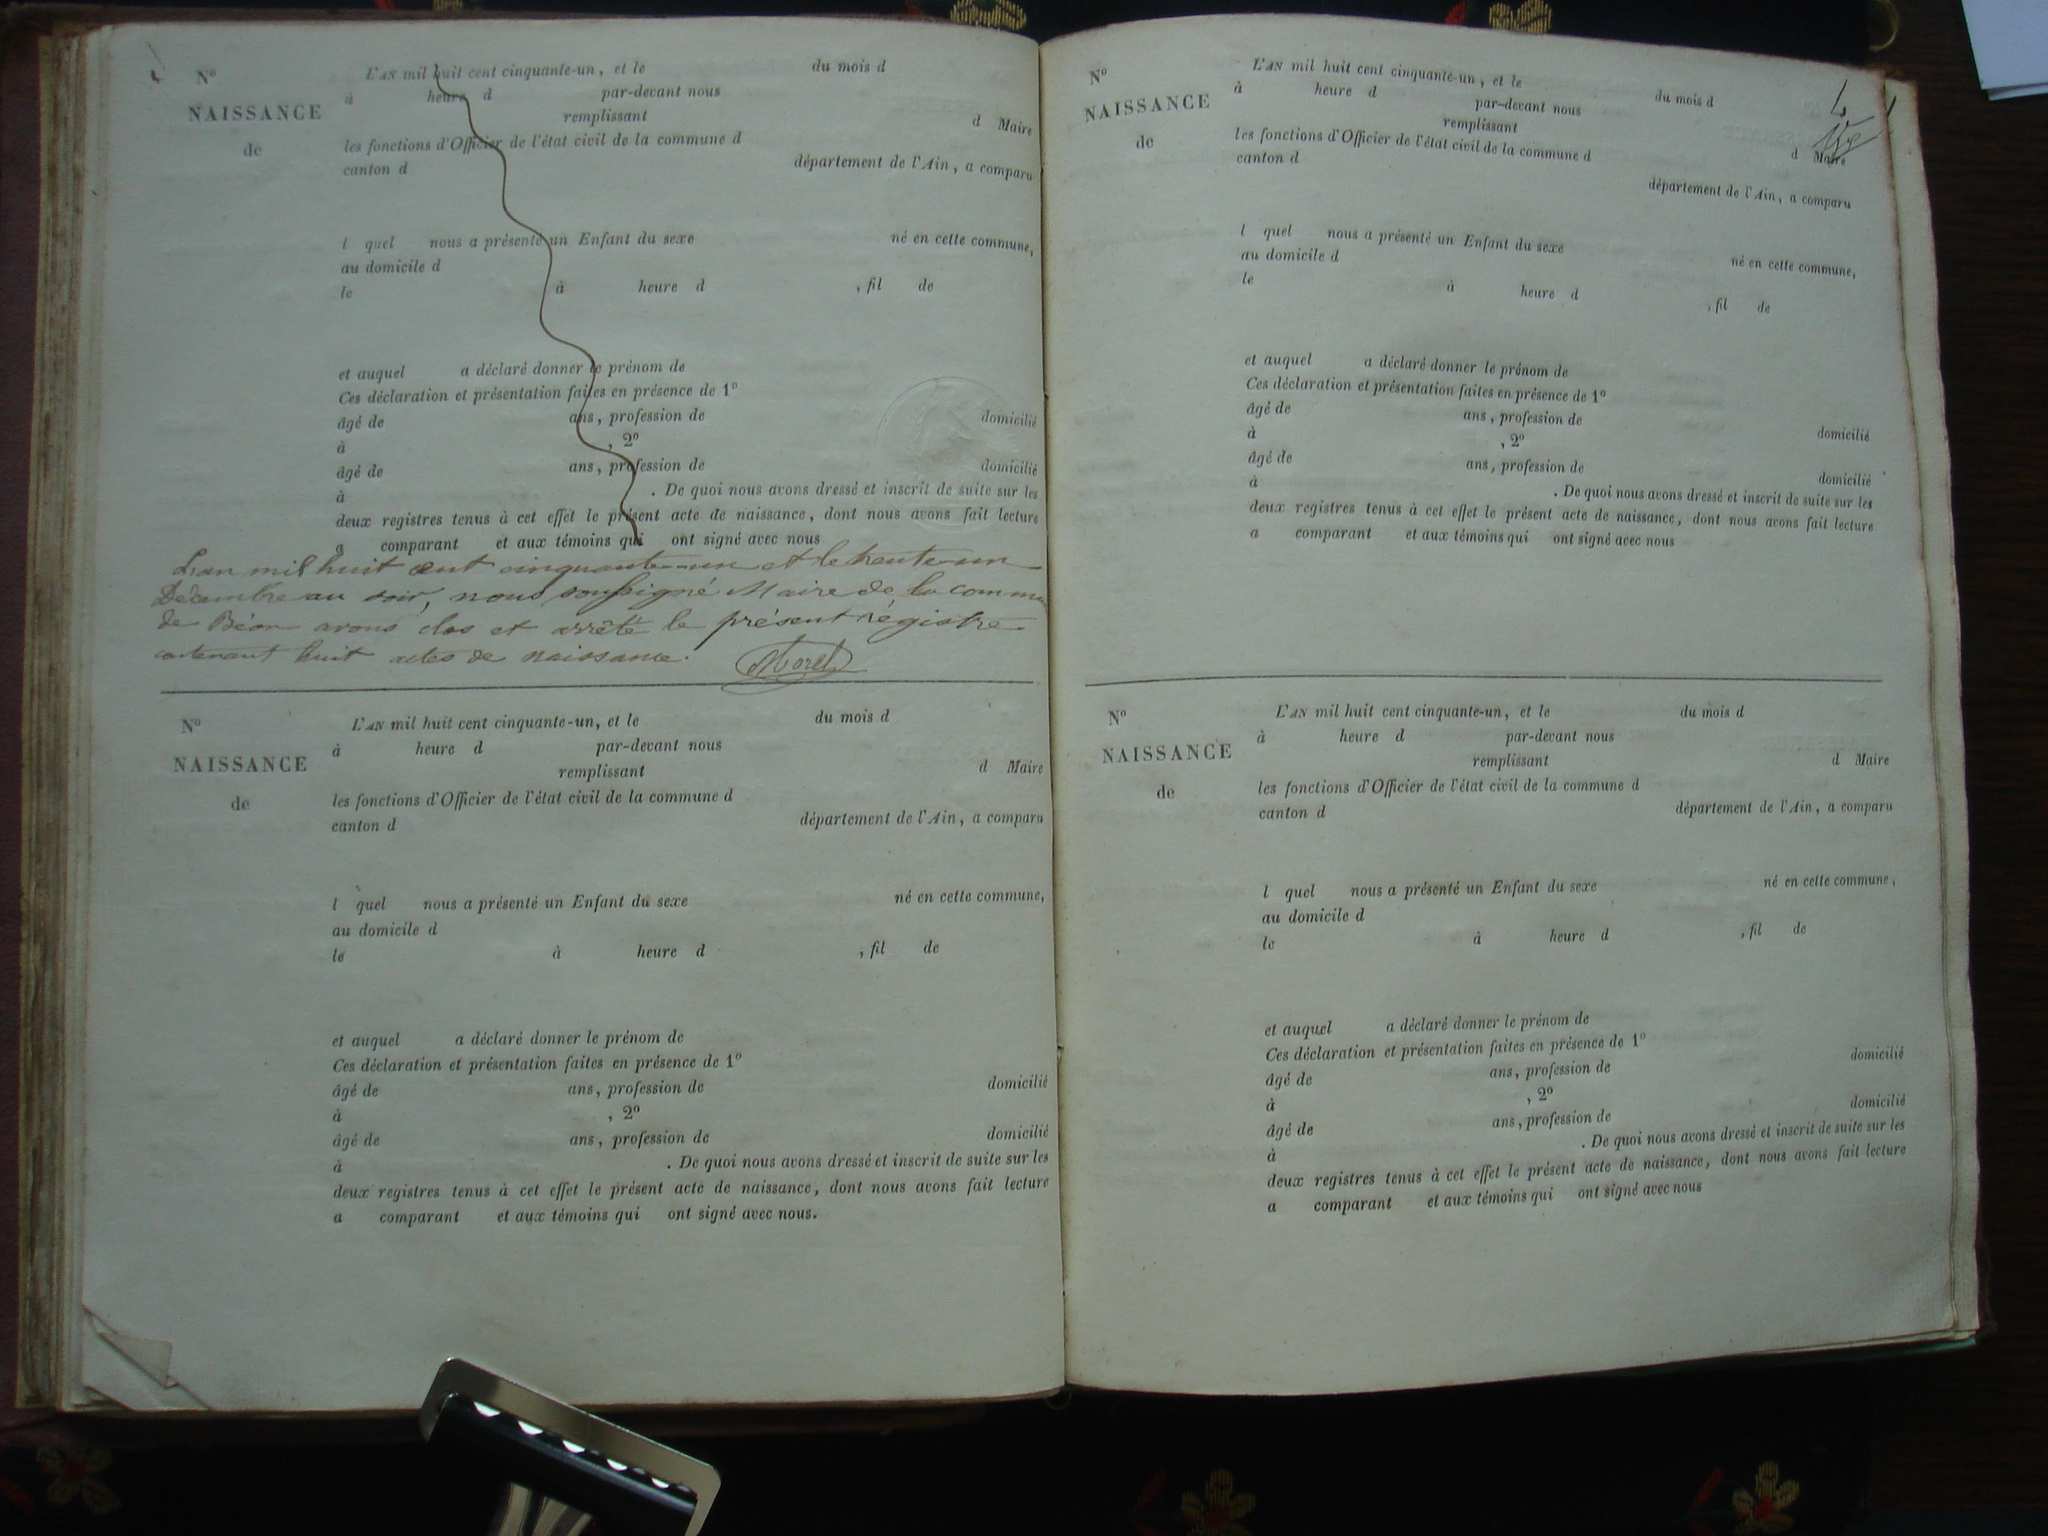 N°
NAISSANCE
de
L'AN mil huit cent cinquante-un, et le du mois d
à heure d par-devant nous
remplissant d Maire
les fonctions d'Officier de l'état civil de la commune d
canton d département de l'Ain, a comparu
l quel nous a présenté un Enfant du sexe né en cette commune,
au domicile d
le à heure d , fil de
et auquel a déclaré donner le prénom de
Ces déclaration et présentation faites en présence de 1°
âgé de ans, profession de domicilié
à , 2°
âgé de ans, profession de domicilié
à . De quoi nous avons dressé et inscrit de suite sur les
deux registres tenus à cet effet le présent acte de naissance, dont nous avons fait lecture
a comparant et aux témoins qui ont signé avec nous
L'an mil huit cent cinquante-un et le trente-un
Décembre au soir, nous soussigné Maire de la commune
de Béon avons clos et arrêté le présent régistre
contenant huit actes de naissance.
Morel
N°
NAISSANCE
de
L'AN mil huit cent cinquante-un, et le du mois d
à heure d par-devant nous
remplissant d Maire
les fonctions d'Officier de l'état civil de la commune d
canton d département de l'Ain, a comparu
l quel nous a présenté un Enfant du sexe né en cette commune,
au domicile d
le à heure d , fil de
et auquel a déclaré donner le prénom de
Ces déclaration et présentation faites en présence de 1°
âgé de ans, profession de domicilié
à , 2°
âgé de ans, profession de domicilié
à . De quoi nous avons dressé et inscrit de suite sur les
deux registres tenus à cet effet le présent acte de naissance, dont nous avons fait lecture
a comparant et aux témoins qui ont signé avec nous.
N°
NAISSANCE
de
L'AN mil huit cent cinquante-un, et le du mois d
à heure d par-devant nous
remplissant d Maire
les fonctions d'Officier de l'état civil de la commune d
canton d département de l'Ain, a comparu
l quel nous a présenté un Enfant du sexe né en cette commune,
au domicile d
le à heure d , fil de
et auquel a déclaré donner le prénom de
Ces déclaration et présentation faites en présence de 1°
âgé de ans, profession de domicilié
à , 2°
âgé de ans, profession de domicilié
à . De quoi nous avons dressé et inscrit de suite sur les
deux registres tenus à cet effet le présent acte de naissance, dont nous avons fait lecture
a comparant et aux témoins qui ont signé avec nous
N°
NAISSANCE
de
L'AN mil huit cent cinquante-un, et le du mois d
à heure d par-devant nous
remplissant d Maire
les fonctions d'Officier de l'état civil de la commune d
canton d département de l'Ain, a comparu
l quel nous a présenté un Enfant du sexe né en cette commune,
au domicile d
le à heure d , fil de
et auquel a déclaré donner le prénom de
Ces déclaration et présentation faites en présence de 1°
âgé de ans, profession de domicilié
à , 2°
âgé de ans, profession de domicilié
à . De quoi nous avons dressé et inscrit de suite sur les
deux registres tenus à cet effet le présent acte de naissance, dont nous avons fait lecture
a comparant et aux témoins qui ont signé avec nous